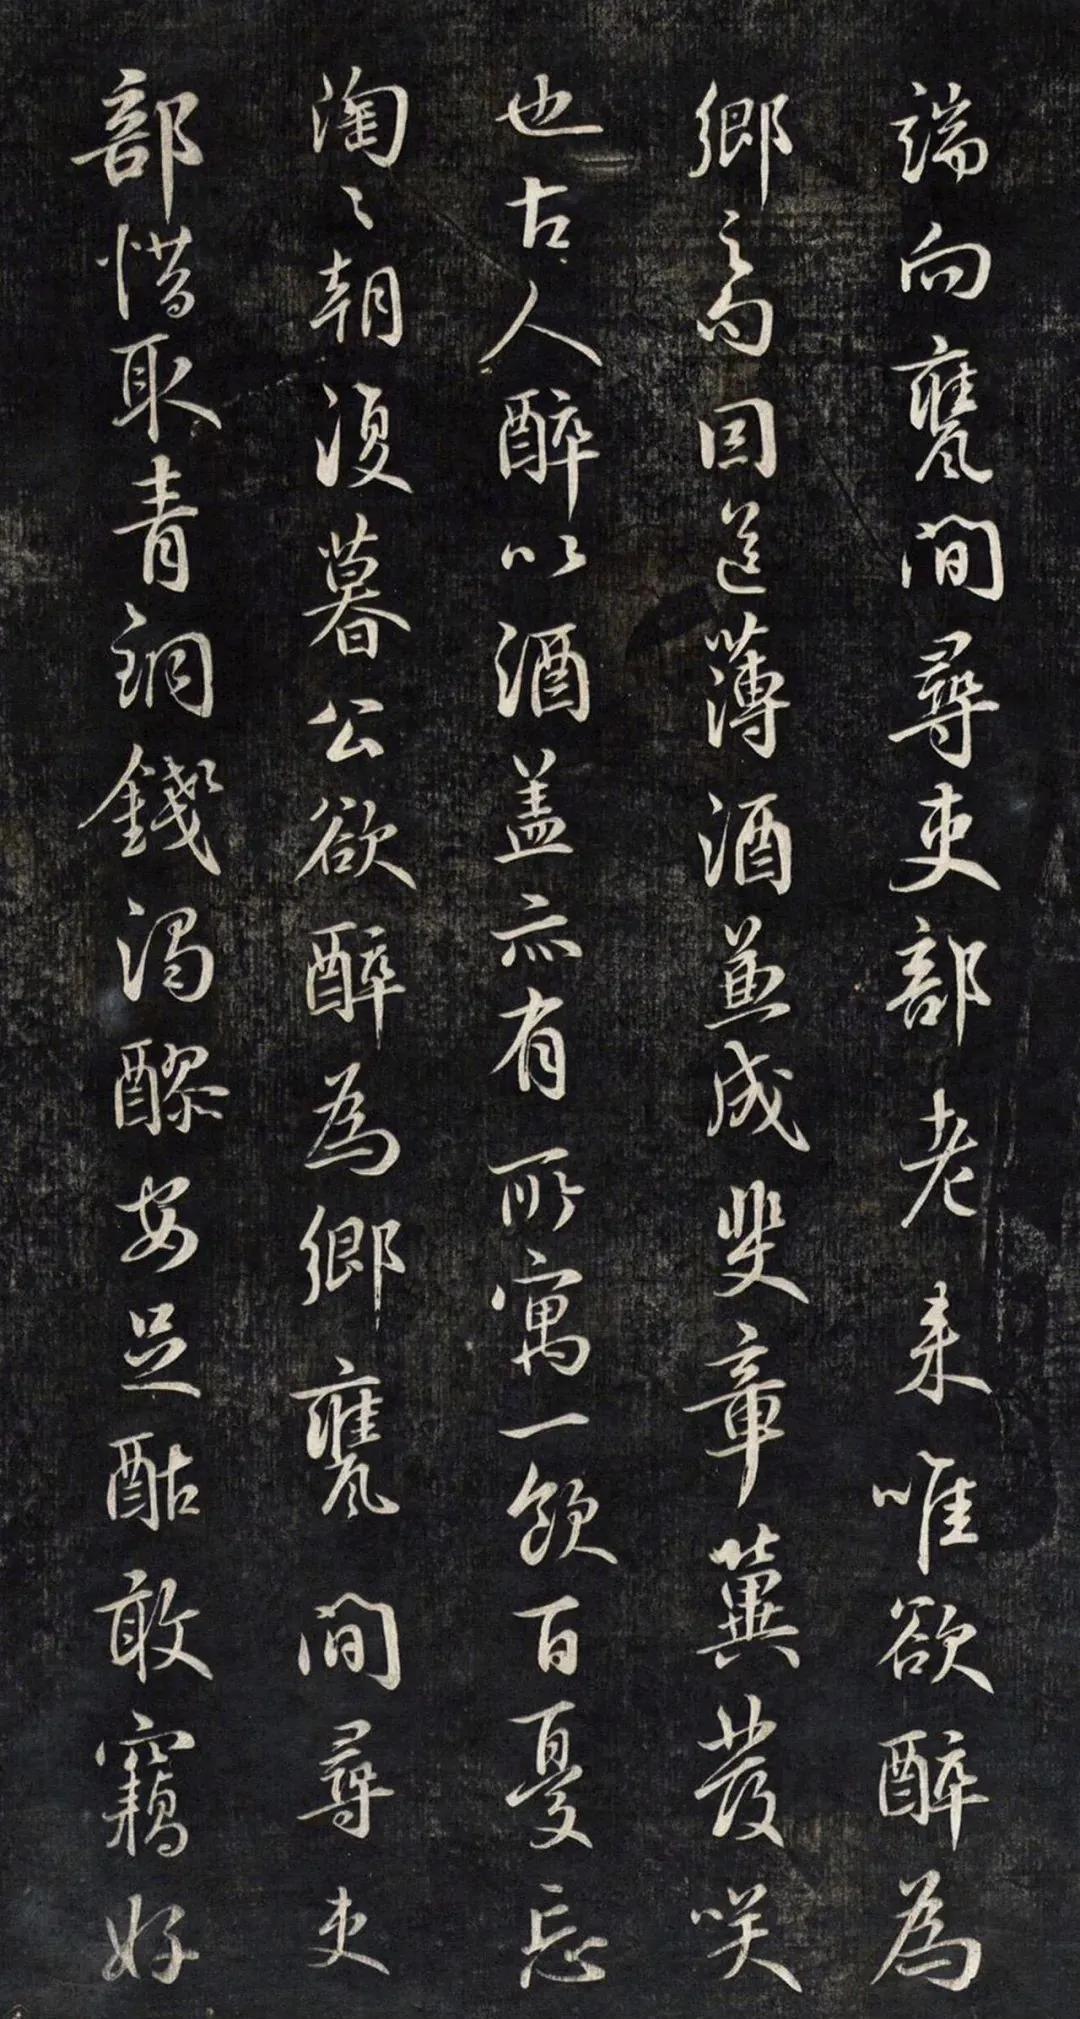 端向甕間尋吏部老来唯欲醉為
鄉之句因送薄酒並成斐章冀發笑
也古人醉以酒盖亦有所寓一飲百憂忘
陶〻朝復暮公欲醉為鄉甕間尋吏
部惜取青銅錢濁醪安足酤敢竊好